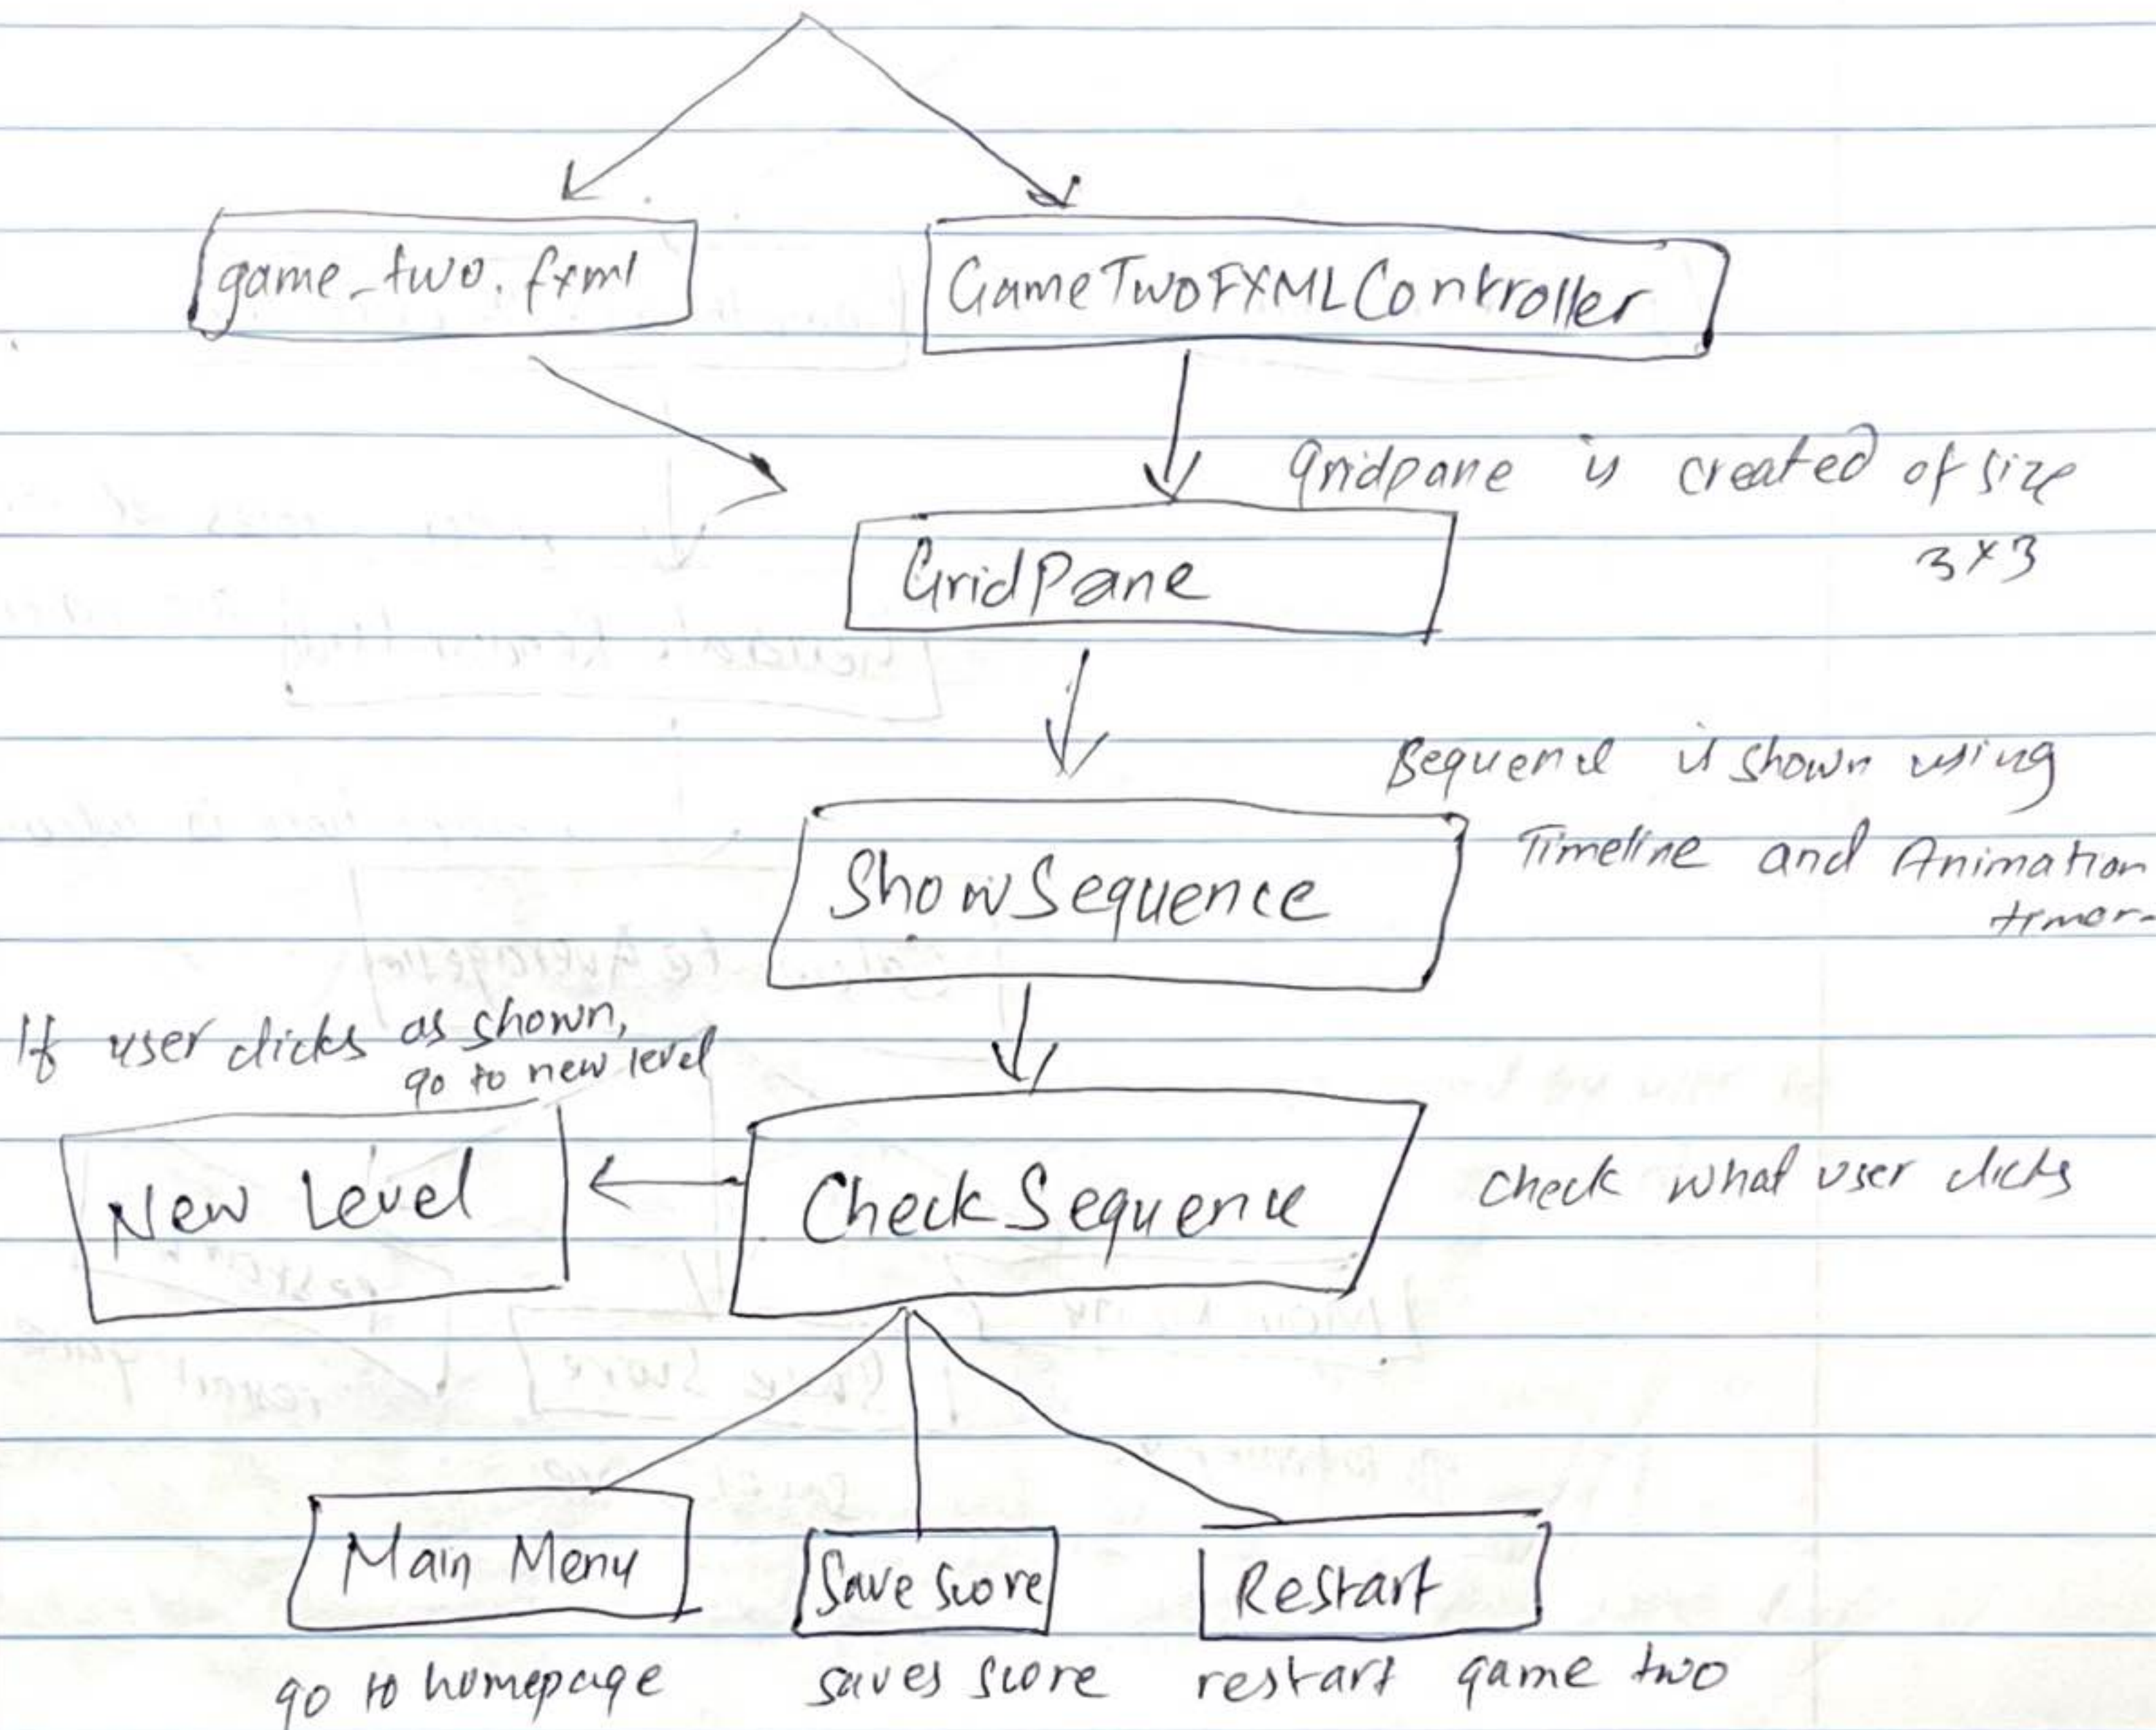 game_two.fxml
GameTwoFXMLController
Gridpane is created of size
3x3
GridPane
Sequence is shown using
Timeline and Animation
timer
ShowSequence
If user clicks as shown,
go to new level
New Level
CheckSequence
check what user clicks
Main Menu
Save Score
Restart
go to homepage
saves score
restart game two